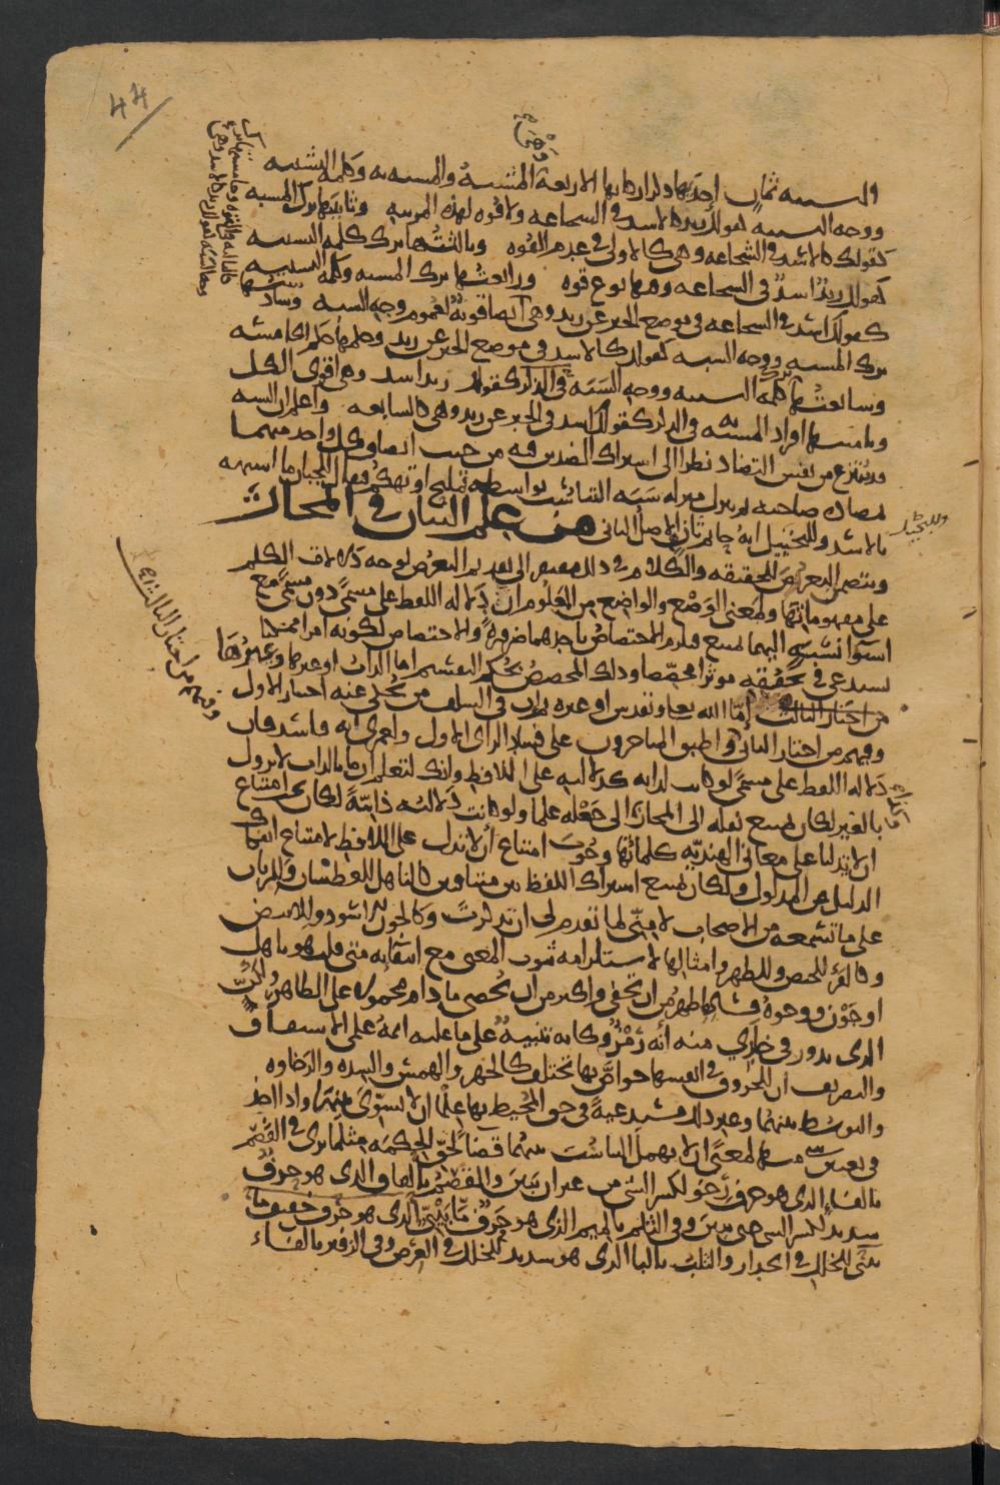 44
وهي
في التشبيه ثمان إحديها ذكر اركانها الاربعة المشبه والمشبه به وكلمة التشبيه
ووجه التشبيه كقولك زيد كالاسد في الشجاعة ولا قوة لهذه المرتبة وثانيتها ترك المشبه
كقولك كالاسد في الشجاعة وهي كالاولى في عدم القوة وثالثتها ترك كلمة التشبيه
كقولك زيد اسد في الشجاعة وفيها نوع قوة ورابعتها ترك المشبه وكلمة التشبيه
كقولك اسد في الشجاعة في موضع الخبر عن زيد وهي ايضا قوية لعموم وجه الشبه وسادستها
ترك المشبه ووجه الشبه كقولك كالاسد في موضع الخبر عن زيد وحكمها حكم الخامسة
وسابعتها ترك كلمة التشبيه ووجه الشبه في الذكر كقولك زيد اسد وهي اقوى الكل
وثامنتها افراد المشبه به في الذكر كقولك اسد في الخبر عن زيد وهي كالسابعة واعلم ان الشبه
قد ينتزع من نفس التضاد نظرا الى اشتراك الضدين فيه من حيث اتصاف كل واحد منهما
بمضادة صاحبه ثم ينزل منزلة شبه التناسب بواسطة تمليح او تهكم فيقال للجبان ما اشبهه
بالاسد وللبخيل انه حاتم ثان الاصل الثاني من علم البيان في المجاز
ويتضمن التعرض للحقيقة والكلام في ذلك مفتقر الى تقديم التعرض لوجه دلالات الكلم
على مفهوماتها ولمعنى الوضع والواضع من المعلوم ان دلالة اللفظ على مسمى دون مسمى مع
استواء نسبته اليهما تمتنع فيلزم الاختصاص باحدهما ضرورة والاختصاص لكونه امرا ممكنا
يستدعي في تحققه مؤثرا مخصصا وذلك المخصص بحكم التقسيم اما الذات او غيرها وغيرها
اما الله تعالى وتقدس او غيره ثم ان في السلف من يحكى عنه اختيار الاول
وفيهم من اختار الثاني واطبق المتاخرون على فساد الراي الاول ولعمري انه فاسد فان
دلالة اللفظ على مسمى لو كانت لذاته كدلالته على اللافظ وانك لتعلم ان ما بالذات لا يزول
بالغير لكان يمتنع نقله الى المجاز وكذا الى جعله علما ولو كانت دلالته ذاتية لكان يجب امتناع
ان لا تدلنا على معاني الهندية كلماتها وجوب امتناع ان لا تدل على اللافظ لامتناع انفكاك
الدليل عن المدلول ولكان يمتنع اشتراك اللفظ بين متنافيين كالناهل للعطشان وللريان
على ما تسمعه من الاصحاب لا مني لما تقدم لي ان تذكرت وكالجون للاسود وللابيض
وكالقرء للحيض وللطهر وامثالها لاستلزامه ثبوت المعنى مع انتفائه متى قلت هو ناهل
او جون ووجوه فساده اظهر من ان تخفى واكثر من ان تحصى ما دام محمولا على الظاهر ولكن
الذي يدور في خلدي منه انه رمز وكانه تنبيه على ما عليه ائمة علمي الاشتقاق
والتصريف ان للحروف في انفسها خواص بها تختلف كالجهر والهمس والشدة والرخاوة
والتوسط بينهما وغير ذلك مستدعية في حق المحيط بها علما ان لا يسوي بينها واذا اخذ
في تعيين شيء منها لمعنى ان لا يهمل التناسب بينهما قضاء لحق الحكمة مثلما ترى في الفصم
بالفاء الذي هو حرف رخو لكسر الشيء من غير ان يبين والقصم بالقاف الذي هو حرف
شديد لكسر الشيء حتى يبين وفي الثلم بالميم الذي هو حرف خفيف ما
يبنى للخلل في الجدار والثلب بالباء الذي هو شديد للخلل في العرض وفي الزفير بالفاء
وللبخيل
وفيهم من اختار الثالث
وكذا